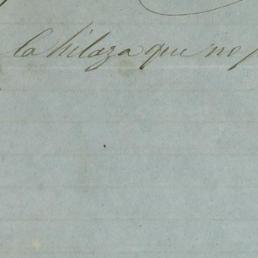 la hilaza que no